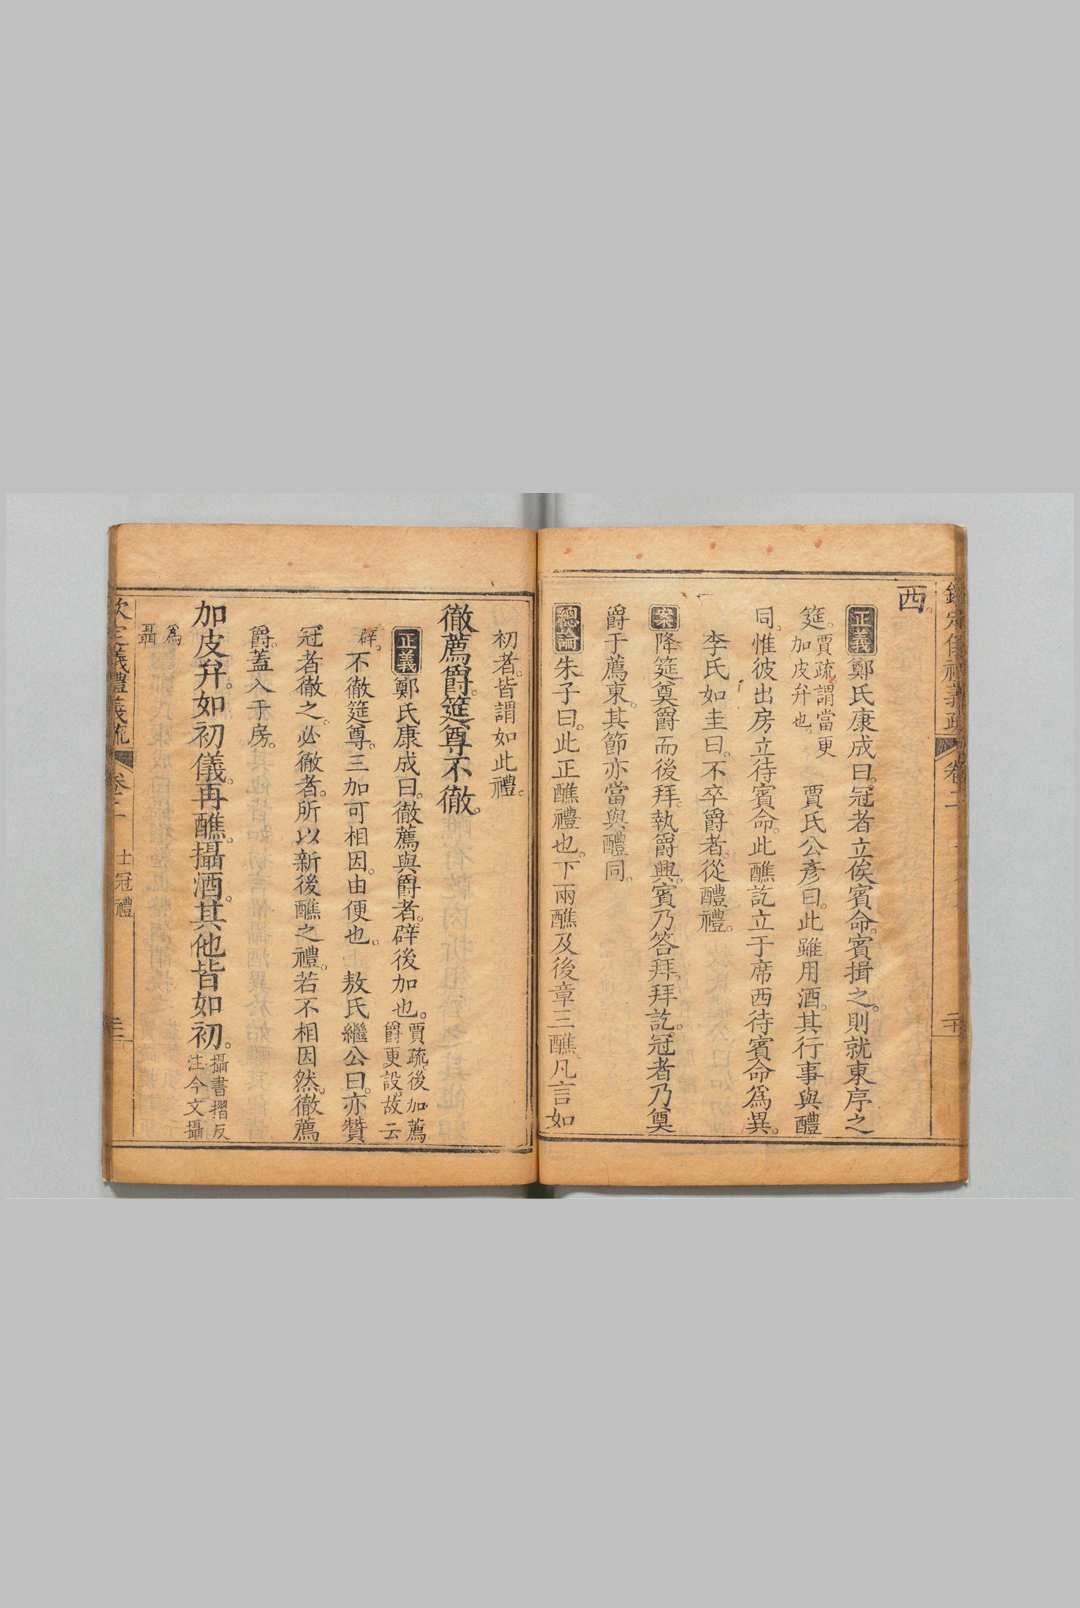 欽定儀禮義疏 卷二
西
正義 鄭氏康成曰冠者立俟賓命賓揖之則就東序之
筵賈疏謂當更加皮弁也 賈氏公彥曰此雖用酒其行事與醴
同惟彼出房立待賓命此醮訖立于席西待賓命為異
李氏如圭曰不卒爵者從醴禮
案 降筵奠爵而後拜執爵興賓乃答拜拜訖冠者乃奠
爵于薦東其節亦當與醴同
總論 朱子曰此正醮禮也下兩醮及後章三醮凡言如
初者皆謂如此禮
徹薦爵筵尊不徹
正義 鄭氏康成曰徹薦與爵者辟後加也賈疏後加薦爵更設故云
辟不徹筵尊三加可相因由便也 敖氏繼公曰亦贊
冠者徹之必徹者所以新後醮之禮若不相因然徹薦
爵蓋入于房
加皮弁如初儀再醮攝酒其他皆如初攝書摺反注今文攝
為聶
欽定儀禮義疏 卷二 士冠禮